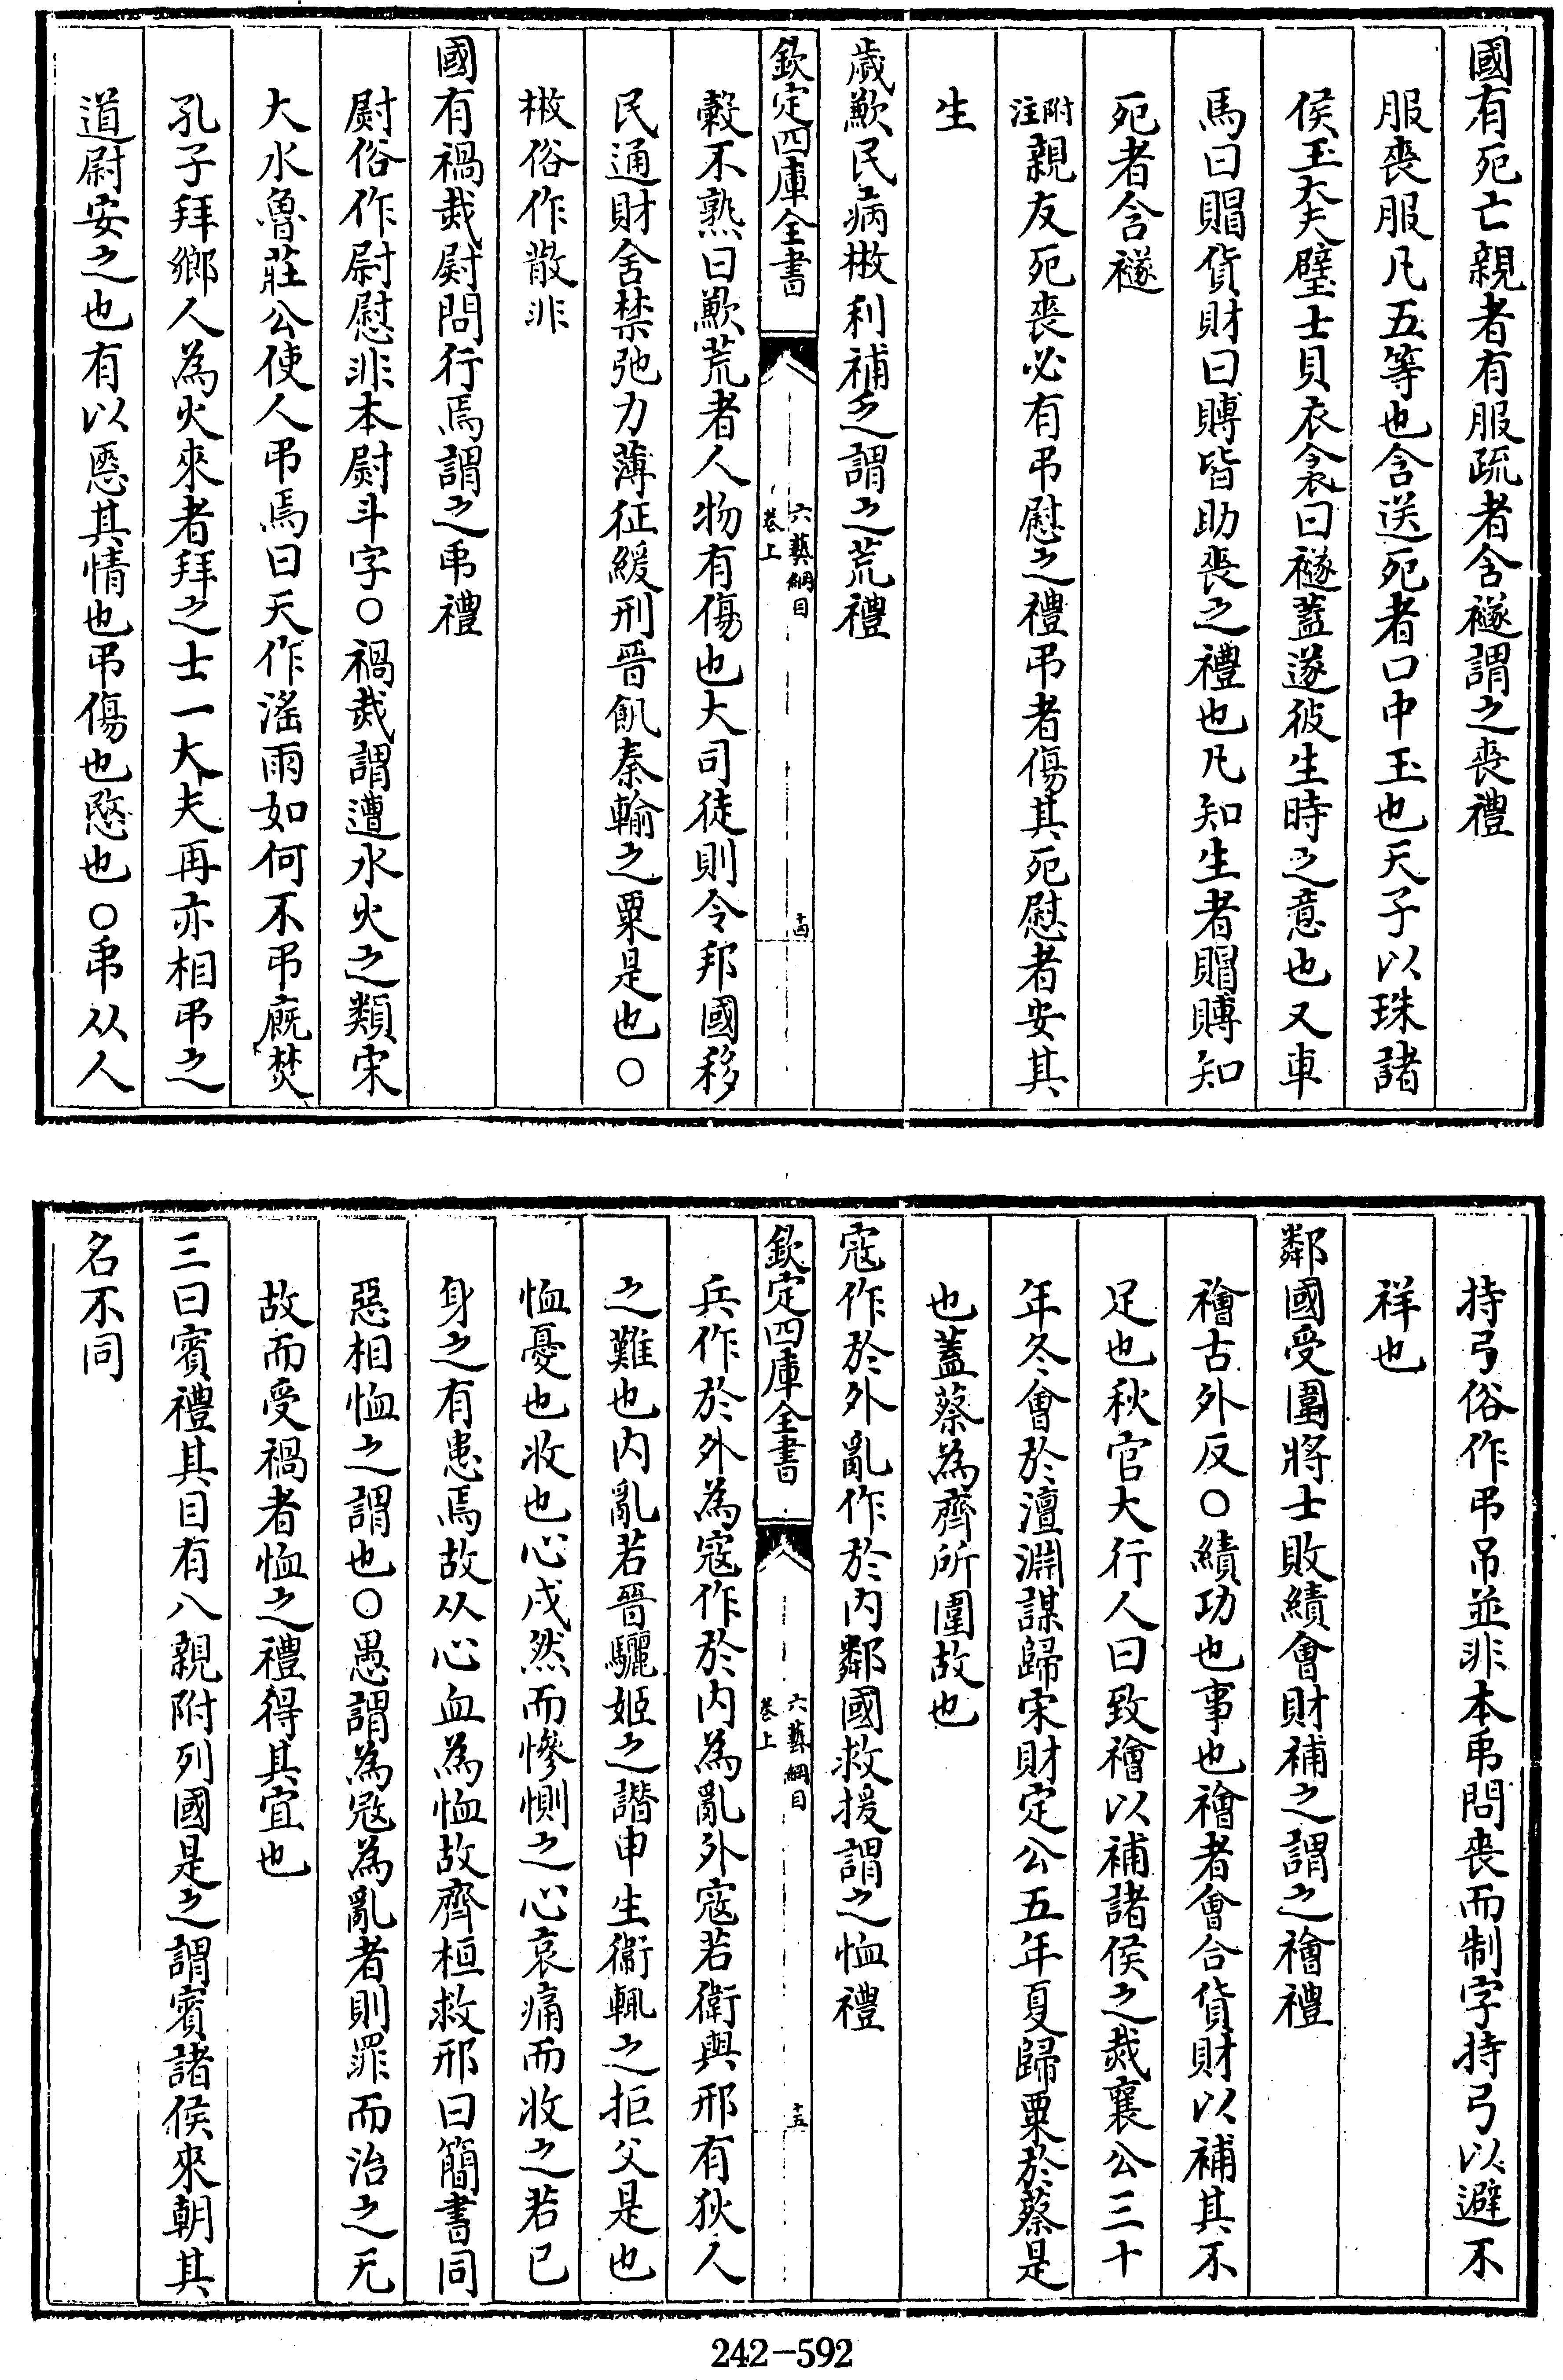 國有死亡親者有服疏者含襚謂之喪禮
服喪服凡五等也含送死者口中玉也天子以珠諸
侯玉大夫璧士貝衣衾曰襚蓋遂彼生時之意也又車
馬曰賵貨財曰賻皆助喪之禮也凡知生者賵賻知
死者含襚
附注親友死喪必有弔慰之禮弔者傷其死慰者安其
生
歲歉民病㪚利補乏謂之荒禮
欽定四庫全書
六藝綱目
卷上
十四
穀不熟曰歉荒者人物有傷也大司徒則令邦國移
民通財舍禁弛力薄征緩刑晉飢秦輸之粟是也○
㪚俗作散非
國有禍烖尉問行焉謂之弔禮
尉俗作尉慰非本尉斗字○禍烖謂遭水火之類宋
大水魯莊公使人弔焉曰天作滛雨如何不弔廐焚
孔子拜鄉人為火來者拜之士一大夫再亦相弔之
道尉安之也有以慁其情也弔傷也愍也○弔从人
持弓俗作弔吊並非本弔問喪而制字持弓以避不
祥也
鄰國受圍將士敗績會財補之謂之禬禮
禬古外反○績功也事也禬者會合貨財以補其不
足也秋官大行人曰致禬以補諸侯之烖襄公三十
年冬會於澶淵謀歸宋財定公五年夏歸粟於蔡是
也蓋蔡為齊所圍故也
寇作於外亂作於内鄰國救援謂之恤禮
欽定四庫全書
六藝綱目
卷上
十五
兵作於外為寇作於内為亂外寇若衛與邢有狄人
之難也内亂若晉驪姬之譖申生衛輒之拒父是也
恤憂也收也心戌然而慘惻之心哀痛而收之若已
身之有患焉故从心血為恤故齊桓救邢曰簡書同
惡相恤之謂也○愚謂為寇為亂者則罪而治之无
故而受禍者恤之禮得其宜也
三曰賓禮其目有八親附列國是之謂賓諸侯來朝其
名不同
242-592